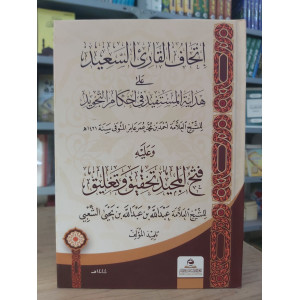 إتحاف القارئ السعيد
على
هداية المستفيد في أحكام التجويد
للشيخ العلامة أحمد بن محمد عمر عامر المتوفى سنة ١٤٢٦هـ
وعليه
فتح المجيد تحقيق وتعليق
للشيخ العلامة عبدالله بن عبدالله بن يحيى الشعبي
تلميذ المؤلف
١٤٤٤هـ